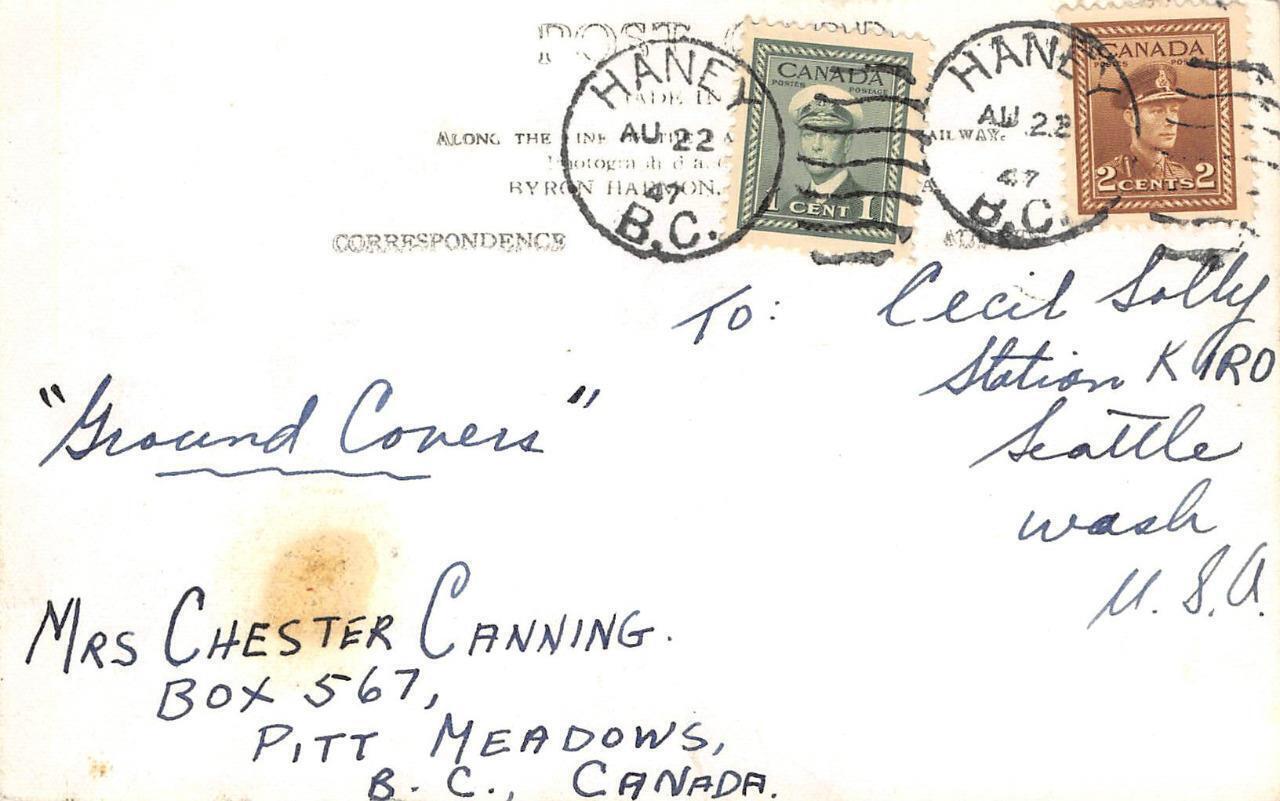 POST
MADE IN
ALONG THE LINE
BYRON HARMON,
CORRESPONDENCE
HANEY
AU 22
47
B.C.
CANADA
POSTES POSTAGE
1 CENT 1
HANEY
AU 22
47
B.C.
CANADA
POSTES
2 CENTS 2
To: Cecil Solly
Station KIRO
Seattle
wash
U.S.A.
"Ground Covers"
MRS CHESTER CANNING.
BOX 567,
PITT MEADOWS,
B.C., CANADA.